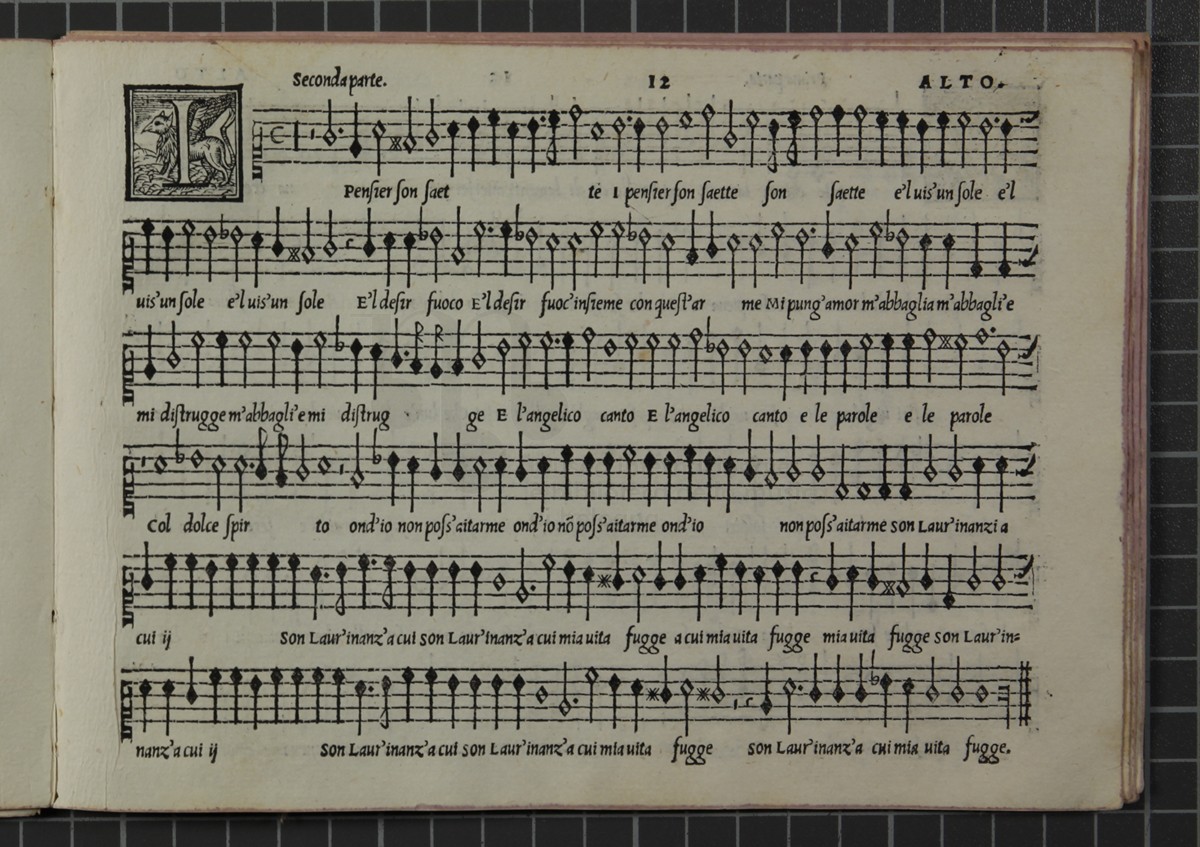 Seconda parte. 12 ALTO.
I Pensier son saet te I pensier son saette son saette e'l uis'un sole e'l
uis'un sole e'l uis'un sole E'l desir fuoco E'l desir fuoc'insieme con quest'ar me Mi pung'amor m'abbaglia m'abbagli'e
mi distrugge m'abbagli'e mi distrug ge E l'angelico canto E l'angelico canto e le parole e le parole
Col dolce spir to ond'io non poss'aitarme ond'io nõ poss'aitarme ond'io non poss'aitarme son Laur'inanzi a
cui ij Son Laur'inanz'a cui son Laur'inanz'a cui mia uita fugge a cui mia uita fugge mia uita fugge son Laur'in=
nanz'a cui ij Son Laur'inanz'a cui son Laur'inanz'a cui mia uita fugge son Laur'inanz'a cui mia uita fugge.